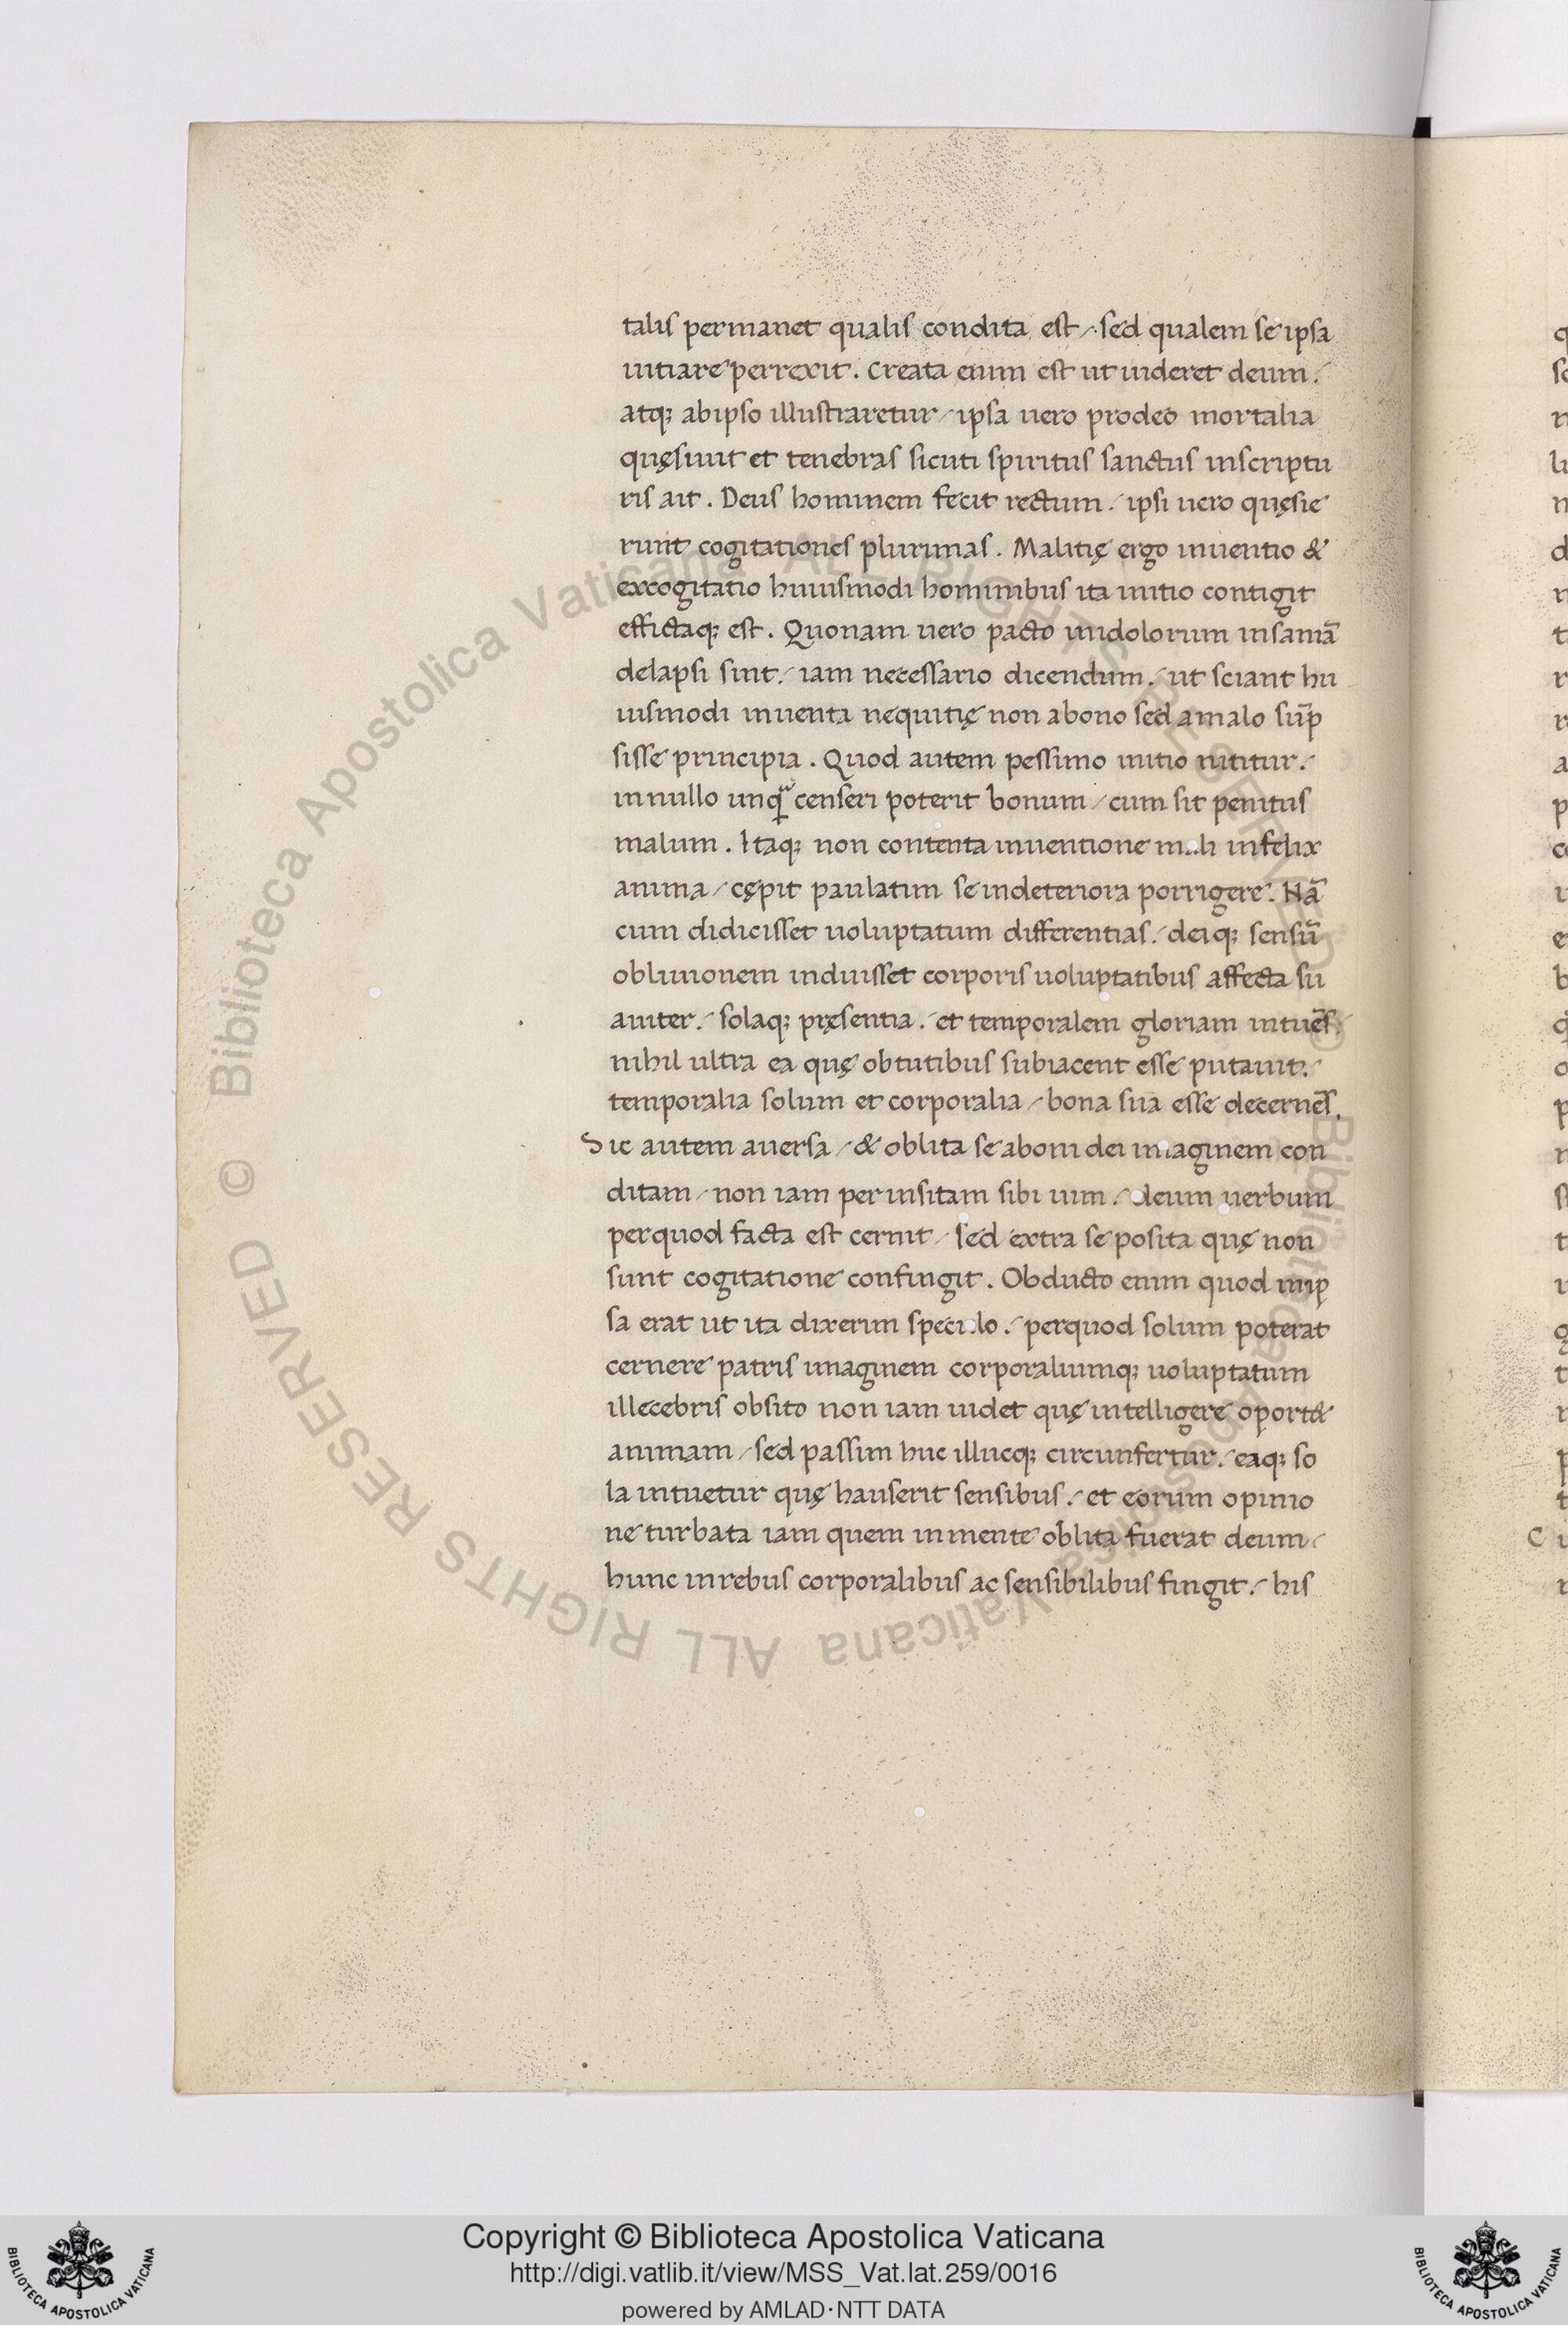 talis permanet qualis condita est / sed qualem se ipsa
uitiare perrexit. Creata enim est ut uideret deum./
atq; abipso illustraretur / ipsa uero prodeo mortalia
quęsiuit et tenebras sicuti spiritus sanctus inscriptu
ris ait. Deus hominem fecit rectum./ ipsi uero quęsie
runt cogitationes plurimas. Malitię ergo inuentio &
excogitatio huiusmodi hominibus ita initio contigit
effictaq; est. Quonam uero pacto inidolorum insaniā
delapsi sint./ iam necessario dicendum./ ut sciant hu
iusmodi inuenta nequitię non abono sed amalo sūp
sisse principia. Quod autem pessimo initio nititur./
innullo unq̃ censeri poterit bonum / cum sit penitus
malum. Itaq; non contenta inuentione mali infelix
anima / cępit paulatim se indeteriora porrigere. Nā
cum didicisset uoluptatum differentias./ deiq; sensū
obliuionem induisset corporis uoluptatibus affecta su
auiter./ solaq; pręsentia./ et temporalem gloriam intuēs
nihil ultra ea quę obtutibus subiacent esse putauit./
temporalia solum et corporalia / bona sua esse decernēs.
Sic autem auersa / & oblita se aboni dei imaginem con
ditam / non iam per insitam sibi uim./ deum uerbum
perquod facta est cernit / sed extra se posita quę non
sunt cogitatione confingit. Obducto enim quod inip
sa erat ut ita dixerim speculo./ perquod solum poterat
cernere patris imaginem corporaliumq; uoluptatum
illecebris obsito non iam uidet quę intelligere oport&
animam / sed passim huc illucq; circunfertur./ eaq; so
la intuetur quę hauserit sensibus./ et eorum opinio
ne turbata iam quem inmente oblita fuerat deum /
hunc inrebus corporalibus ac sensibilibus fingit./ his
© Biblioteca Apostolica Vaticana ALL RIGHTS RESERVED © Biblioteca Apostolica Vaticana ALL RIGHTS RESERVED
Copyright © Biblioteca Apostolica Vaticana
http://digi.vatlib.it/view/MSS_Vat.lat.259/0016
powered by AMLAD·NTT DATA
BIBLIOTECA APOSTOLICA VATICANA
BIBLIOTECA APOSTOLICA VATICANA